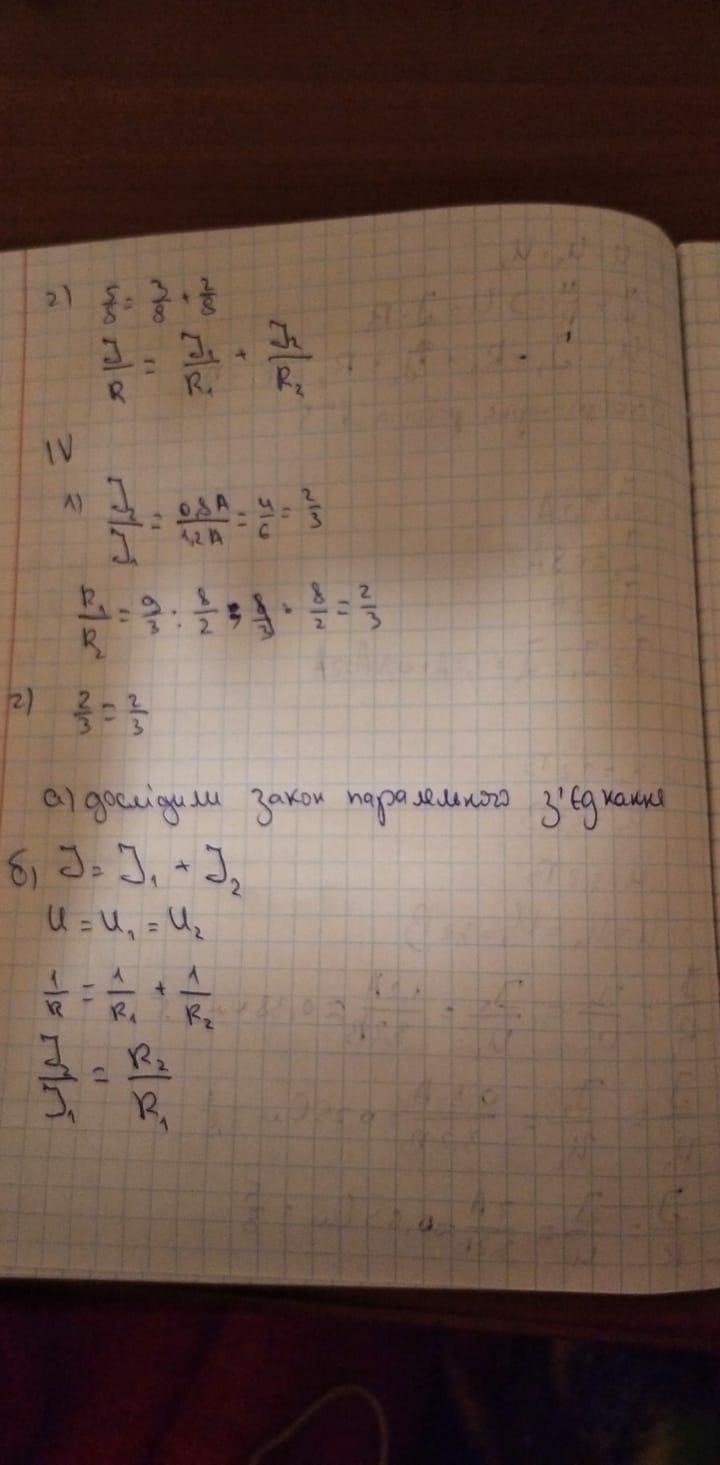 2) 5/8 = 3/8 + 2/8
J/R = J₁/R₁ + J₂/R₂
IV
1) J₂/J₁ = 0,8A/1,2A = 4/6 = 2/3
R₁/R₂ = 9/3 : 8/2 = 8/3 · 8/2 = 2/3
2) 2/3 = 2/3
а) дослідили закон паралельного з'єднання
б) J = J₁ + J₂
U = U₁ = U₂
1/R = 1/R₁ + 1/R₂
J₂/J₁ = R₂/R₁